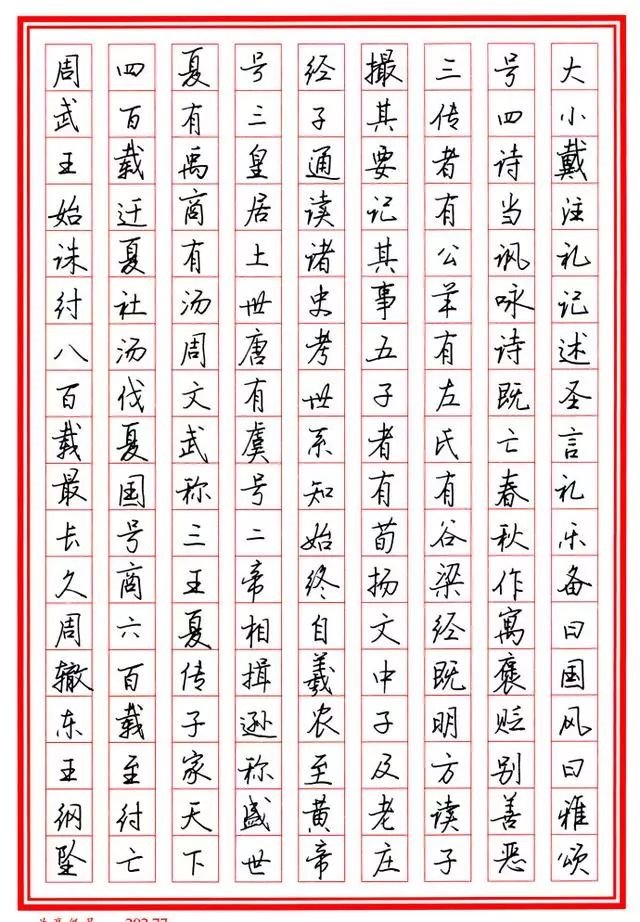 大小戴注礼记述圣言礼乐备曰国风曰雅颂
号四诗当讽咏诗既亡春秋作寓褒贬别善恶
三传者有公羊有左氏有谷梁经既明方读子
撮其要记其事五子者有荀扬文中子及老庄
经子通读诸史考世系知始终自羲农至黄帝
号三皇居上世唐有虞号二帝相揖逊称盛世
夏有禹商有汤周文武称三王夏传子家天下
四百载迁夏社汤伐夏国号商六百载至纣亡
周武王始诛纣八百载最长久周辙东王纲坠